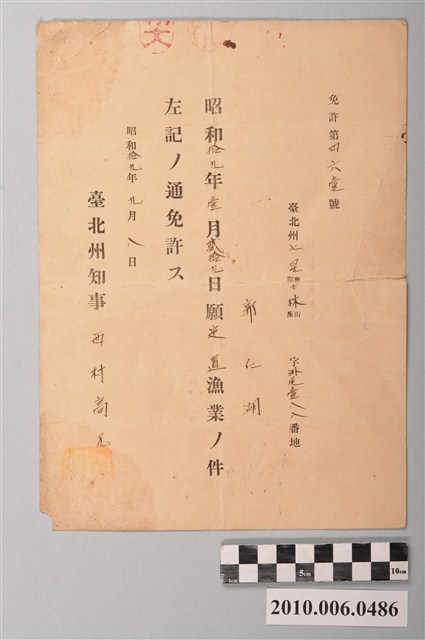 免許第四六壹號
臺北州七星郡士林街
字外雙壹八八番地
郭仁湖
昭和拾九年壹月貳拾九日願定置漁業ノ件
左記ノ通免許ス
昭和拾九年九月八日
臺北州知事 西村高兄
1cm 5cm 10cm
2010.006.0486